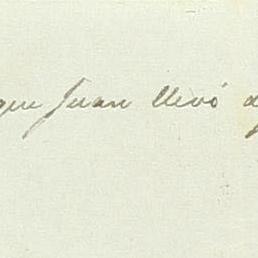 que Juan llevó